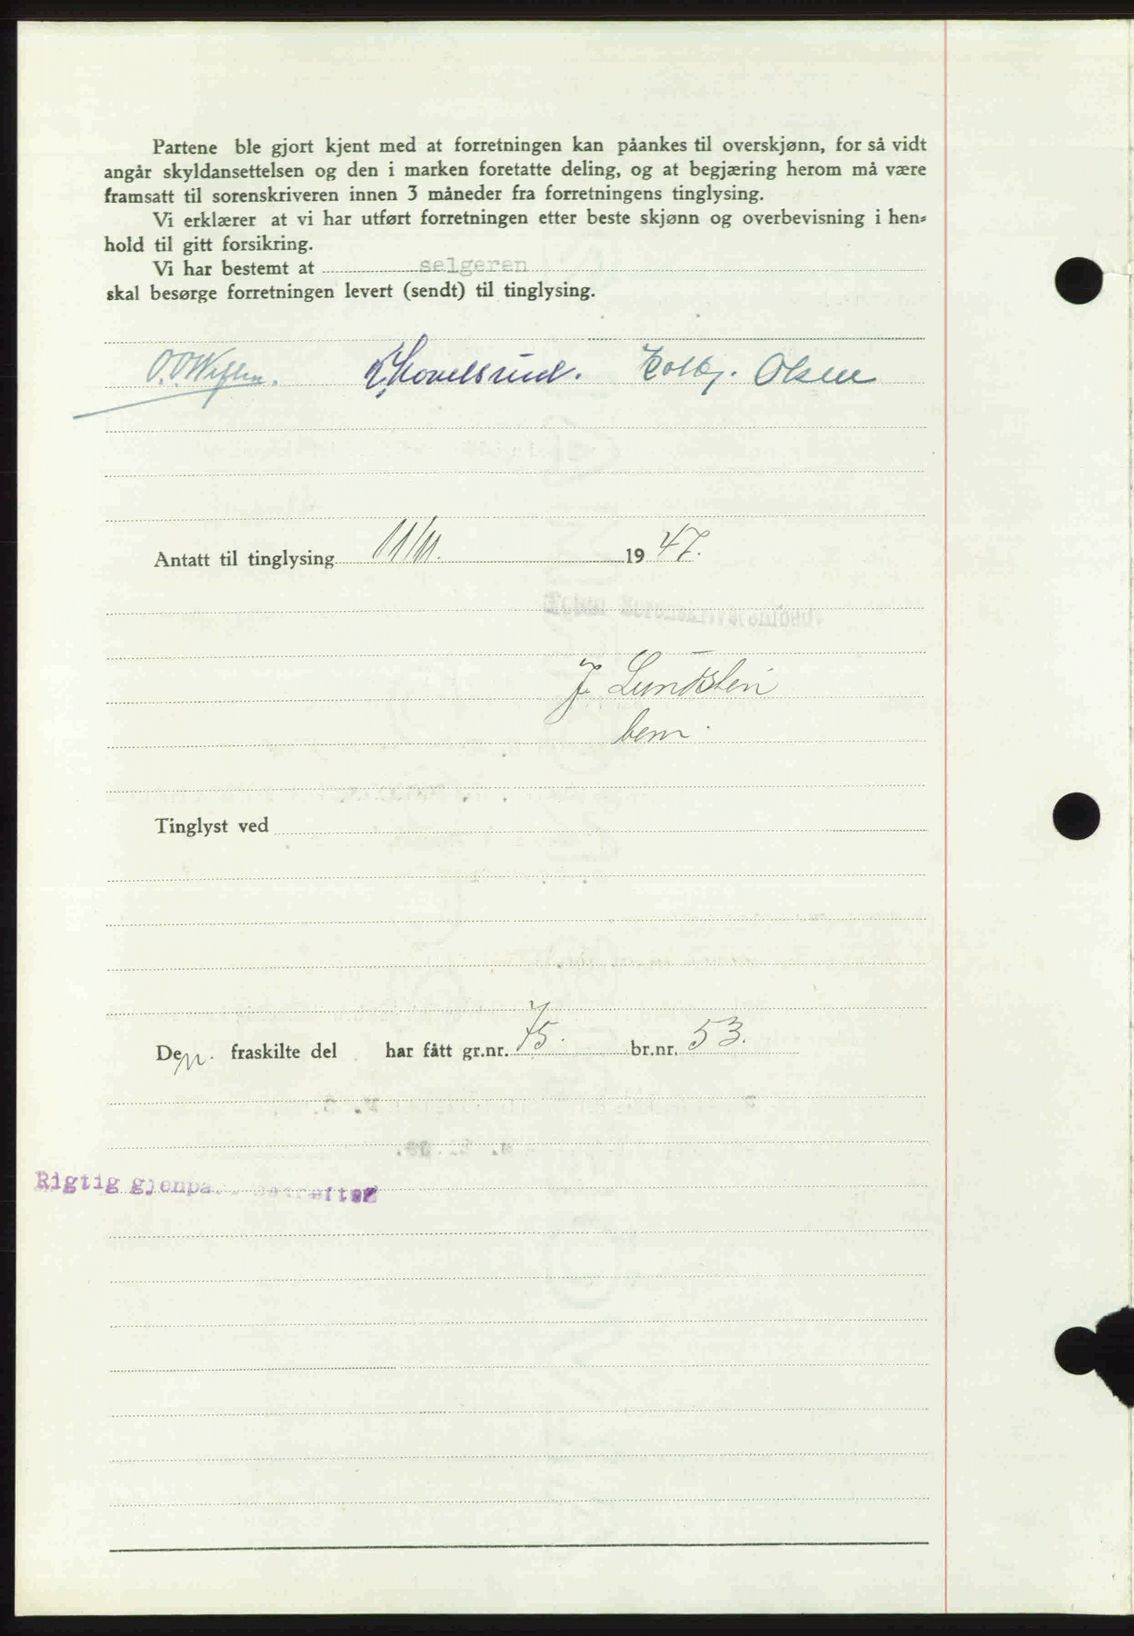 Partene ble gjort kjent med at forretningen kan påankes til overskjønn, for så vidt
angår skyldansettelsen og den i marken foretatte deling, og at begjæring herom må være
framsatt til sorenskriveren innen 3 måneder fra forretningens tinglysing.
Vi erklærer at vi har utført forretningen etter beste skjønn og overbevisning i hen=
hold til gitt forsikring.
Vi har bestemt at selgeren
skal besørge forretningen levert (sendt) til tinglysing.
Kolbj. Olsen
Antatt til tinglysing 11/11. 1947.
J. Lundstein
bem.
Tinglyst ved
Den. fraskilte del har fått gr.nr. 75. br.nr. 53.
Rigtig